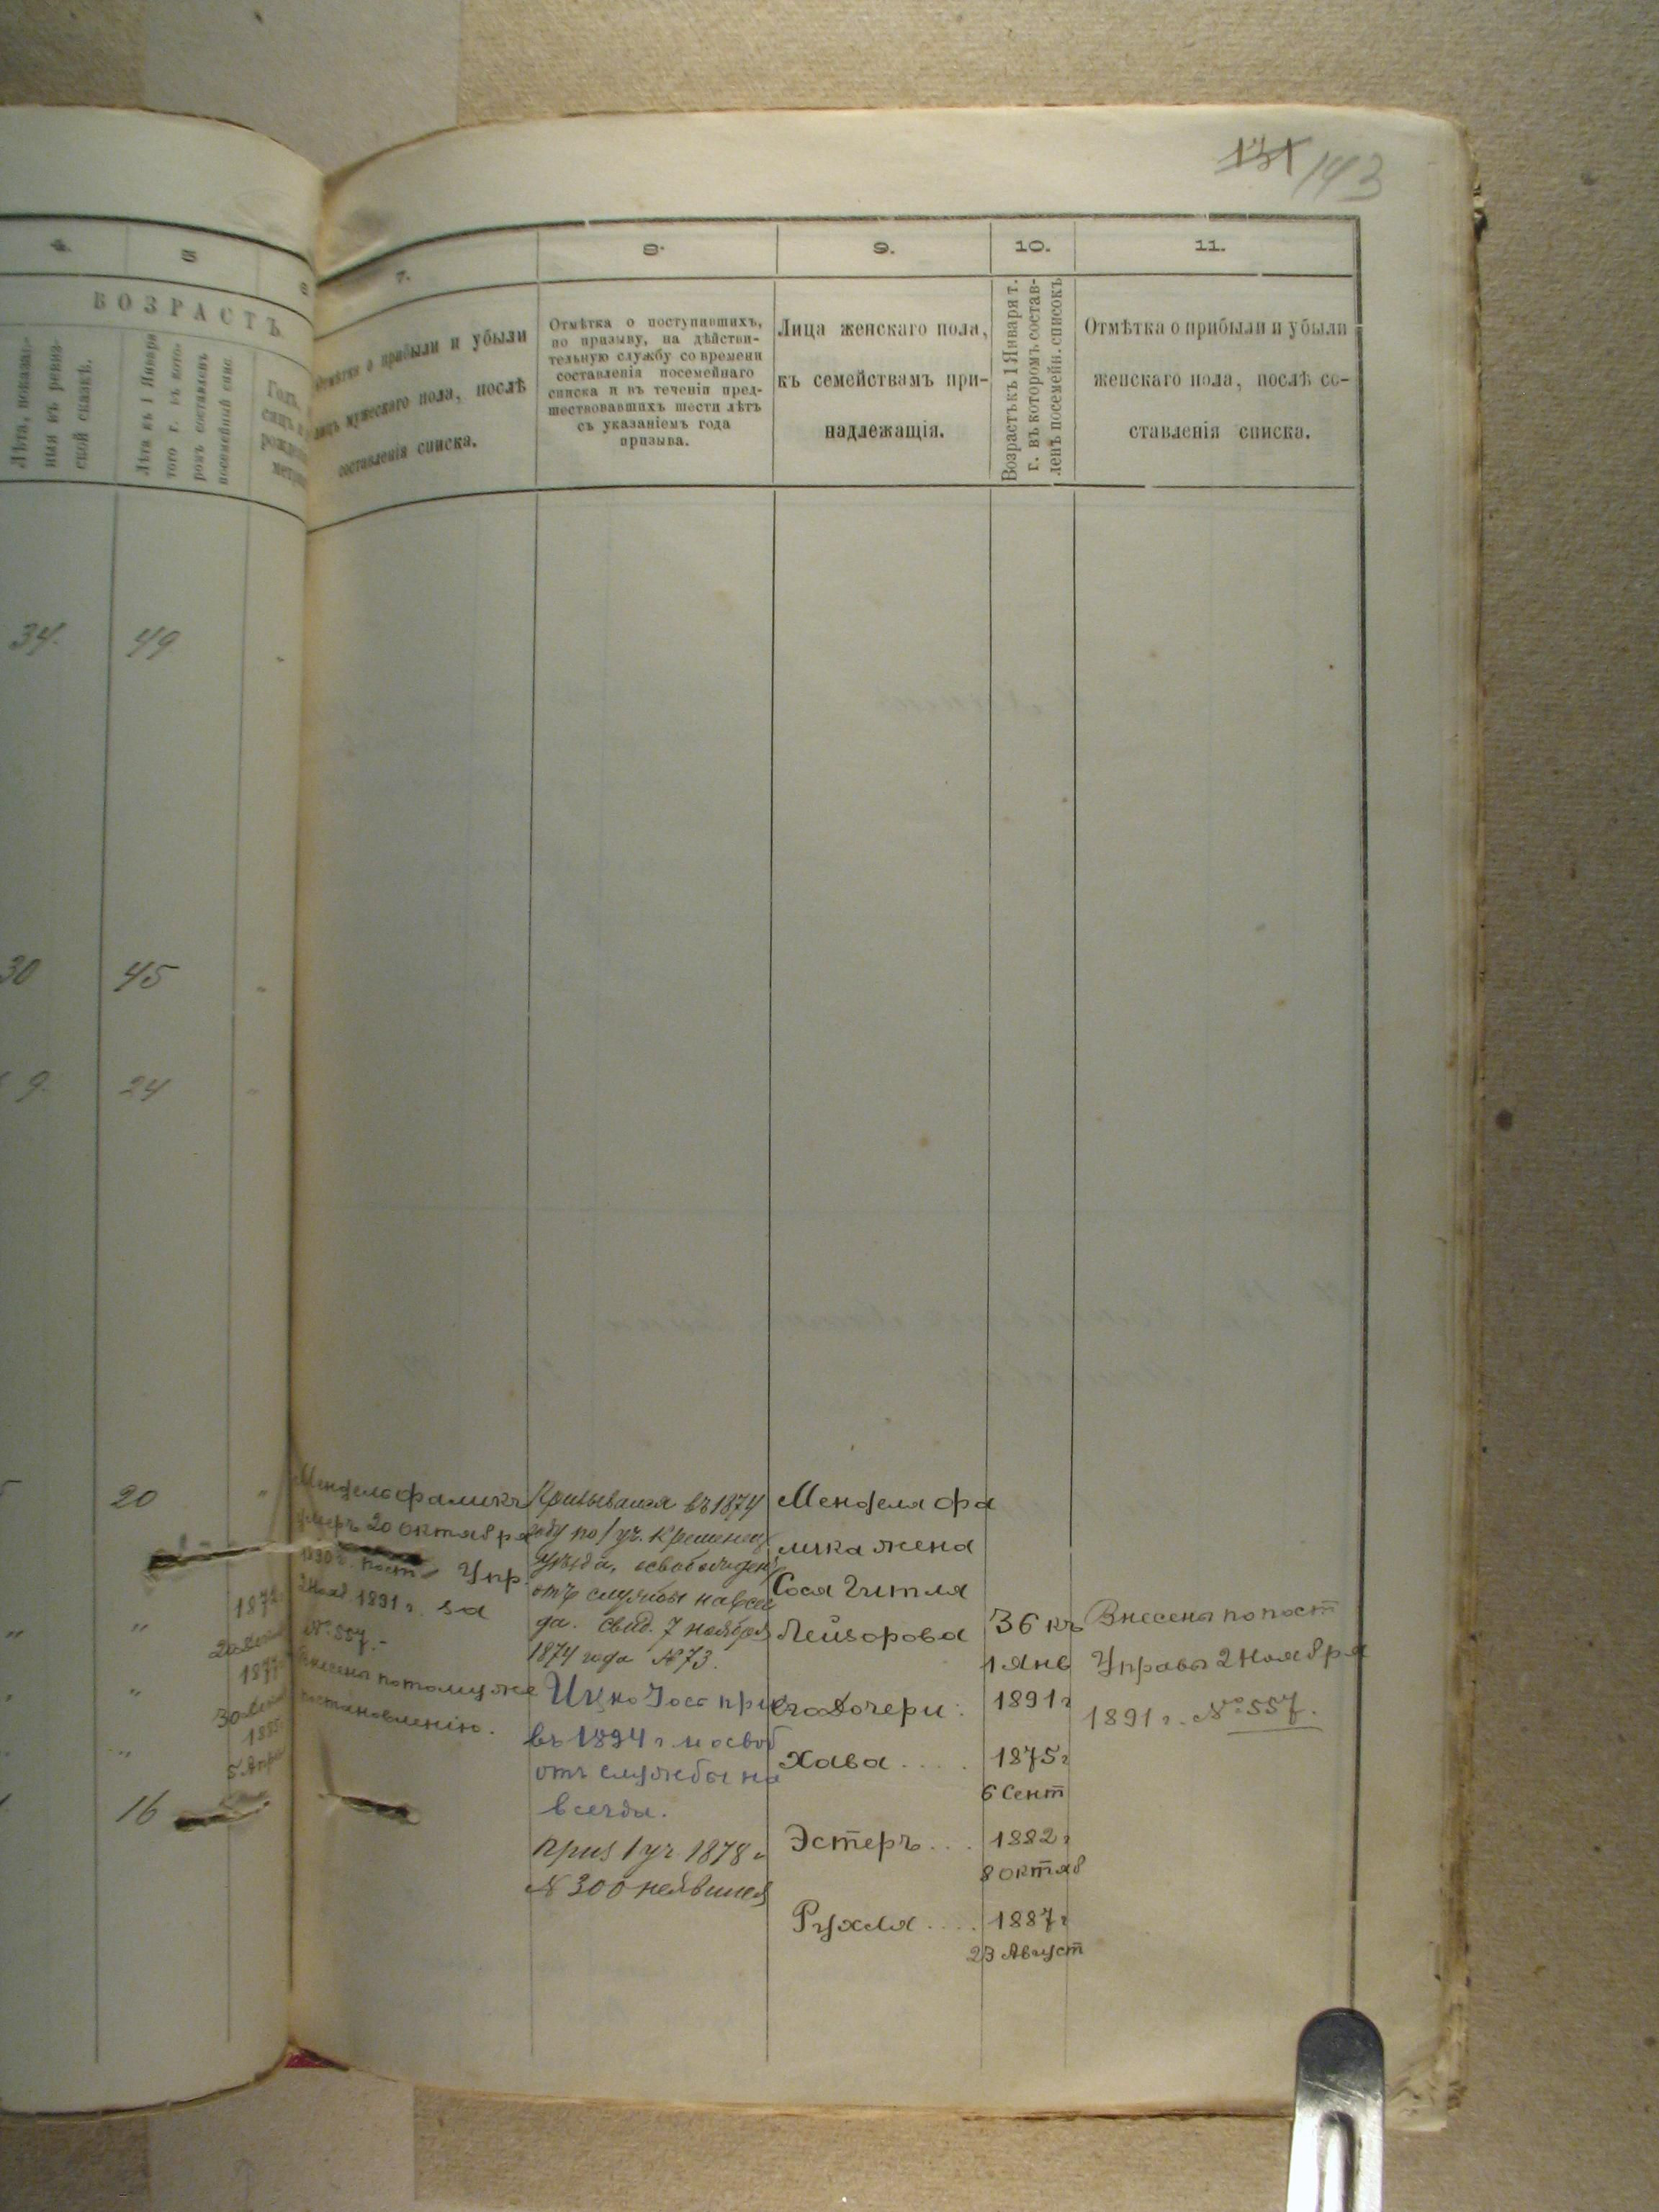 131 143
4.
5
6
ВОЗРАСТЪ
Лѣта, показан-
ныя въ ревиз-
ской сказкѣ.
Лѣта къ 1 Января
того г. въ кото-
ромъ составленъ
посемейный спис.
Годъ,
рожде
метри
34. 49
30 45
9. 24
20
" "
1872
"
1877
30
1885
"
5 Апр
16
7.
Отмѣтка о прибыли и убыли
лицъ мужескаго пола, послѣ
составленія списка.
Мендель Фамикъ
умеръ 20 октября
1890 г. пост Упр.
2 Нояб. 1891 г. за
№ 557.-
Внесены по тому же
постановленію.
8.
Отмѣтка о поступившихъ,
по призыву, на дѣйстви-
тельную службу со времени
составленія посемейнаго
списка и въ теченіи пред-
шествовавшихъ шести лѣтъ
съ указаніемъ года
призыва.
Призывался въ 1874
году по 1 уч. Кременец
уѣзда, освобожденъ
отъ службы навсег
да. Свид. 7 ноября
1874 года № 73.
Ицко Іосъ приз
въ 1894 г. и освоб
отъ службы на
всегда.
приз 1 уч 1878 г
№ 300 неявился
9.
Лица женскаго пола,
къ семействамъ при-
надлежащія.
Менделя Фа
мика жена
Сося Гитля
Лейзорова
его Дочери:
Хава . . . .
Эстеръ . . .
Рухля . . . .
10.
Возрастъ къ 1 Января т.
г. въ которомъ состав-
ленъ посемейн. списокъ
36 къ
1 Янв
1891 г
1875 г
6 Сент
1882 г
8 октяб
1887 г
23 Август
11.
Отмѣтка о прибыли и убыли
женскаго пола, послѣ со-
ставленія списка.
Внесены по пост
Управы 2 Ноября
1891 г. № 557.